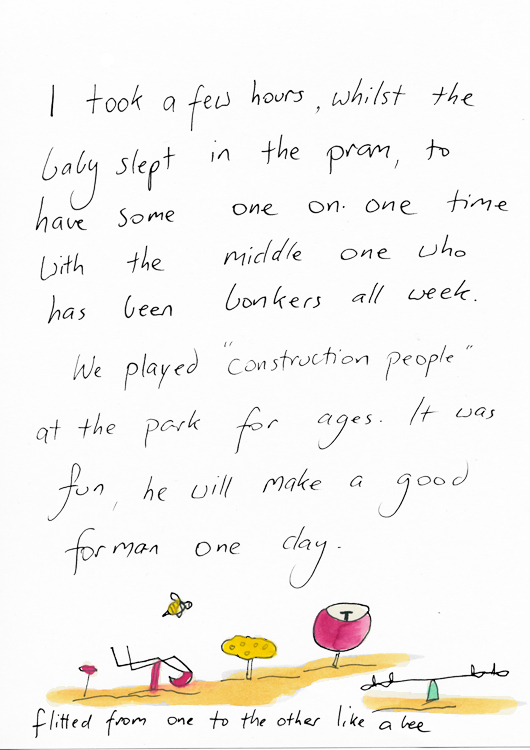 I took a few hours, whilst the
baby slept in the pram, to
have some one on. one time
with the middle one who
has been bonkers all week.
We played "construction people"
at the park for ages. It was
fun, he will make a good
forman one day.
flitted from one to the other like a bee